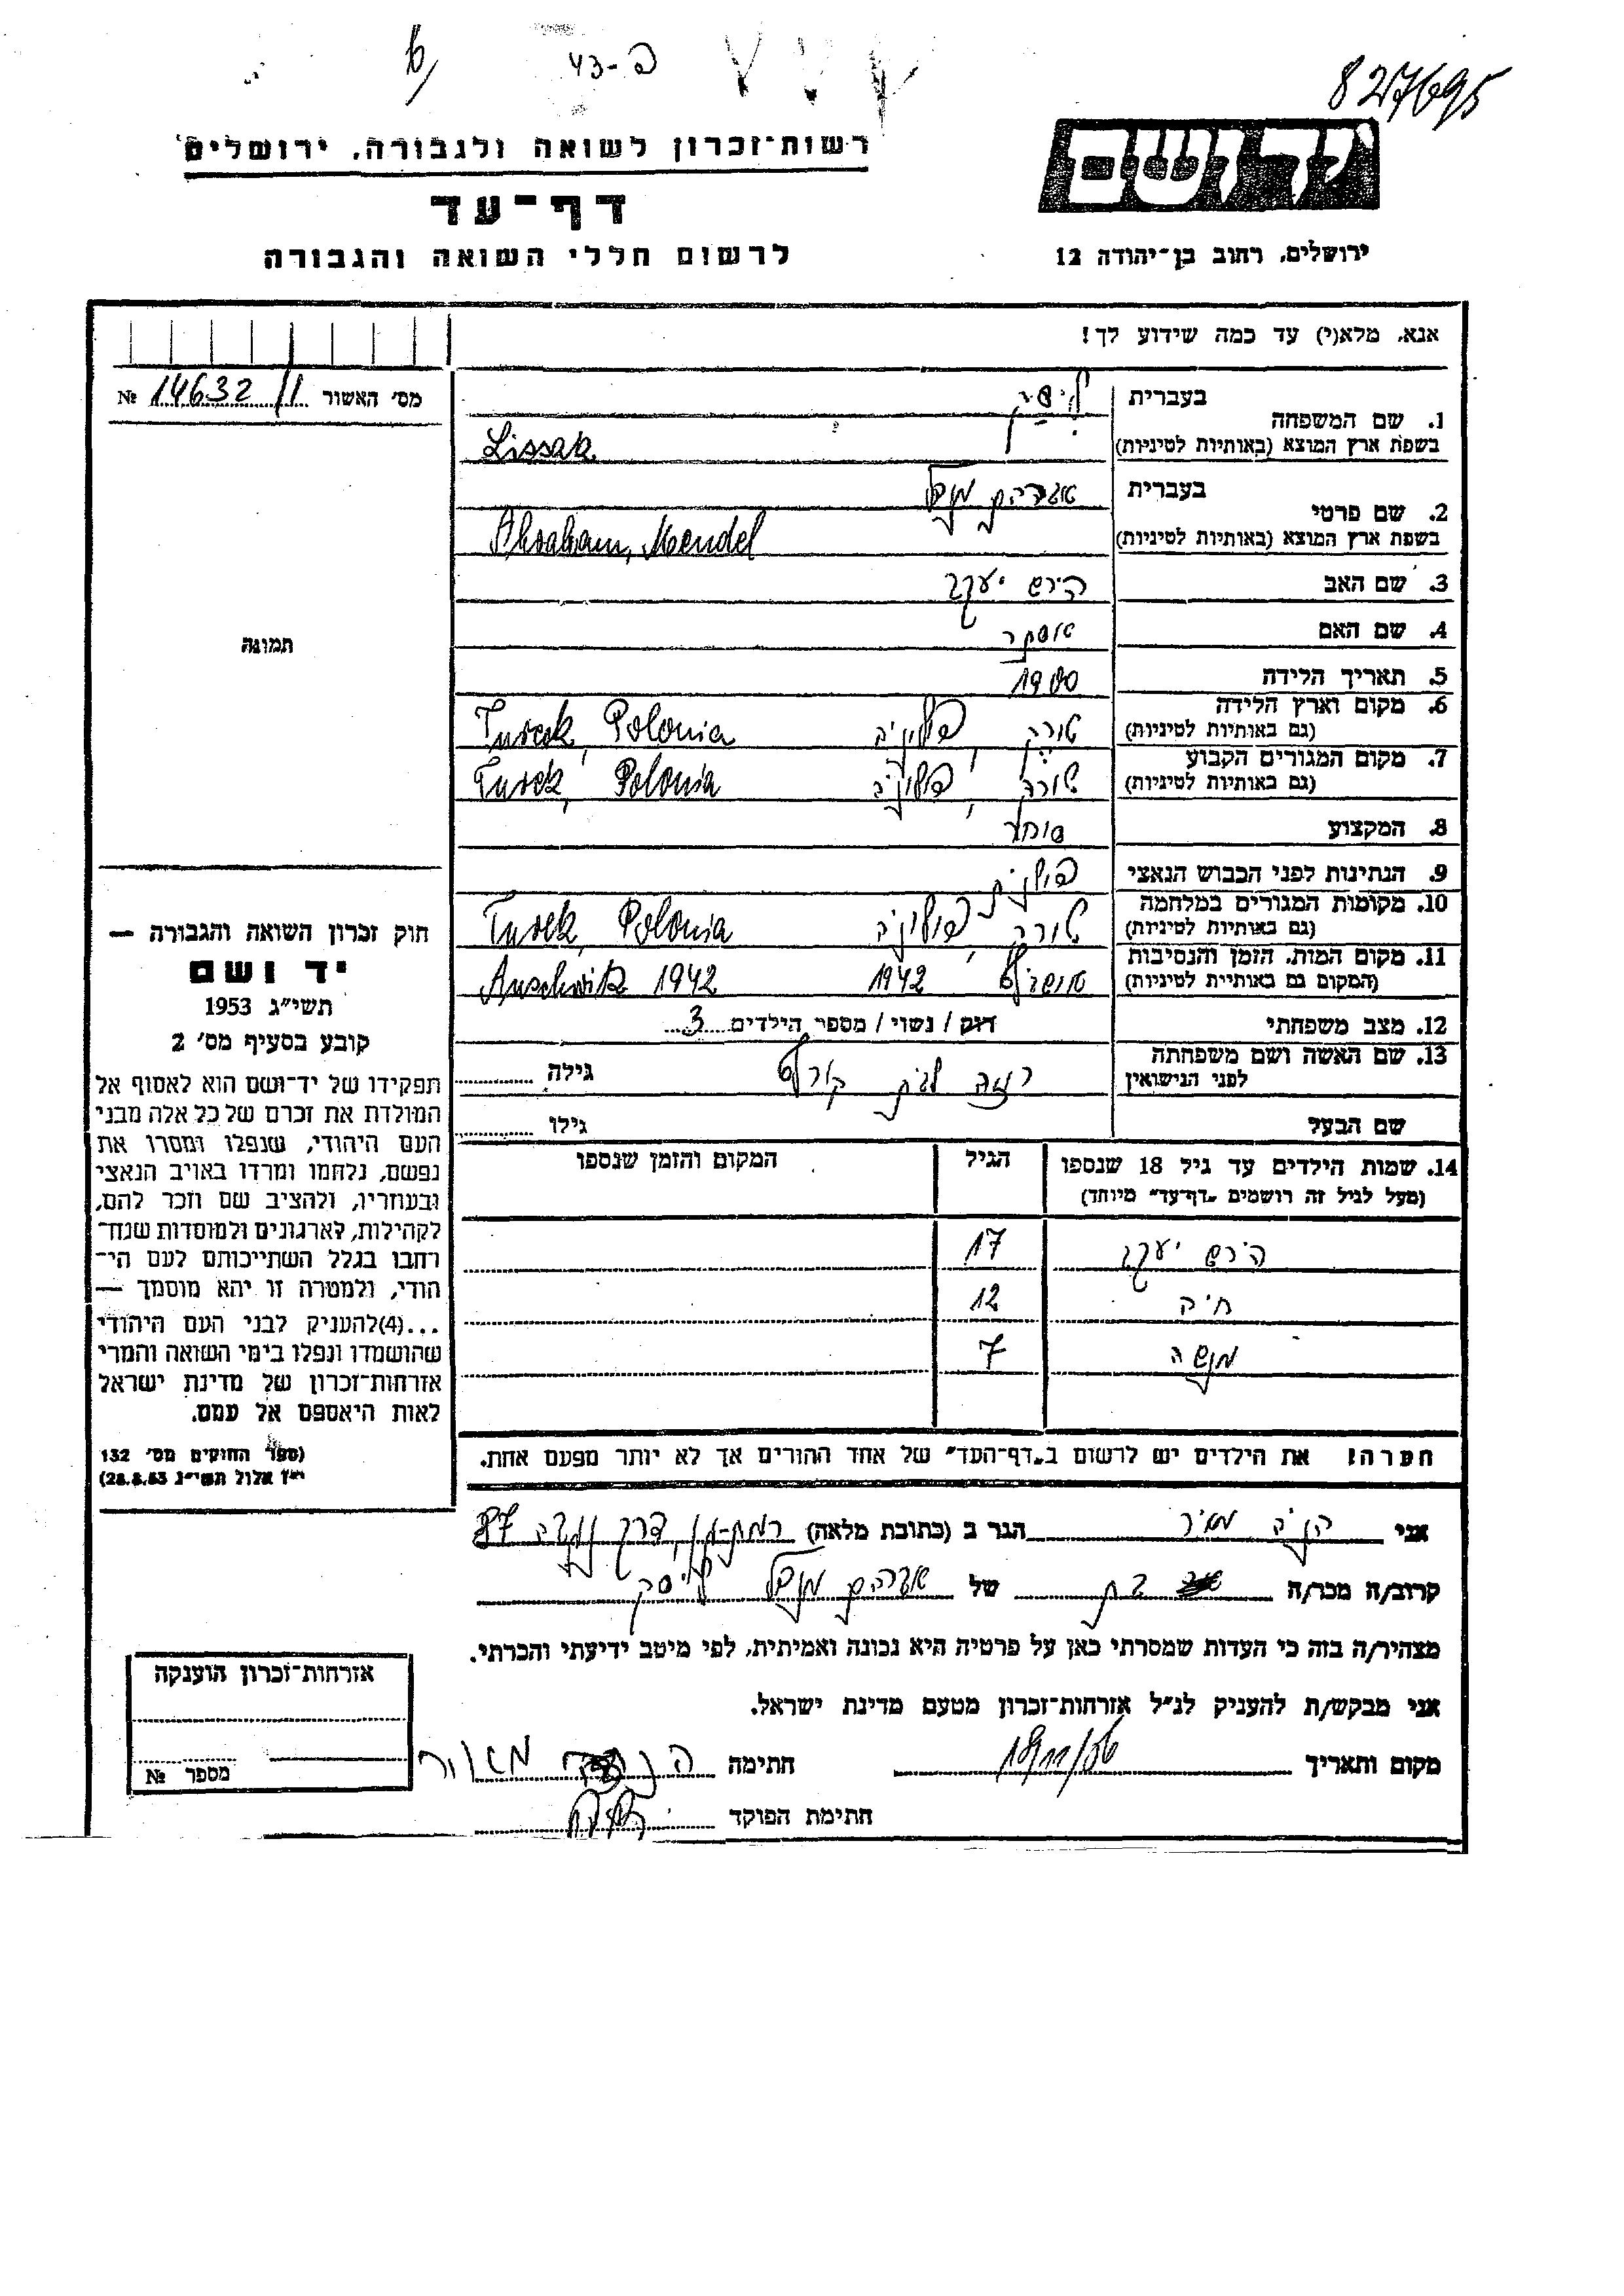 827695
43-פ
יד ושם
רשות־זכרון לשואה ולגבורה, ירושלים
דף־עד
לרשום חללי השואה והגבורה
ירושלים, רחוב בן־יהודה 12
אנא, מלא(י) עד כמה שידוע לך!
מס׳ האשור 14632/1 №
1. שם המשפחה
בעברית ליסק
בשפת ארץ המוצא (באותיות לטיניות) Lissak
2. שם פרטי
בעברית אברהם מנדל
בשפת ארץ המוצא (באותיות לטיניות) Abraham, Mendel
3. שם האב הירש יעקב
4. שם האם אסתר
5. תאריך הלידה 1900
6. מקום וארץ הלידה טורק, פולניה Turek, Polonia
(גם באותיות לטיניות)
7. מקום המגורים הקבוע טורק, פולניה Turek, Polonia
(גם באותיות לטיניות)
8. המקצוע סוחר
9. הנתינות לפני הכבוש הנאצי פולנית
10. מקומות המגורים במלחמה טורק, פולניה Turek, Polonia
(גם באותיות לטיניות)
11. מקום המות, הזמן והנסיבות אושויץ 1942 Auschwitz 1942
(המקום גם באותיות לטיניות)
12. מצב משפחתי רוק / נשוי / מספר הילדים 3
13. שם האשה ושם משפחתה רוזה לבית גילה
לפני הנישואין
שם הבעל גילו
14. שמות הילדים עד גיל 18 שנספו הגיל המקום והזמן שנספו
(מעל לגיל זה רושמים „דף־עד״ מיוחד)
הירש יעקב 17
חיה 12
מנשה 7
הערה! את הילדים יש לרשום ב„דף־העד״ של אחד ההורים אך לא יותר מפעם אחת.
תמונה
חוק זכרון השואה והגבורה —
יד ושם
תשי״ג 1953
קובע בסעיף מס׳ 2
תפקידו של יד־ושם הוא לאסוף אל
המולדת את זכרם של כל אלה מבני
העם היהודי, שנפלו ומסרו את
נפשם, נלחמו ומרדו באויב הנאצי
ובעוזריו, ולהציב שם וזכר להם,
לקהילות, לארגונים ולמוסדות שנח־
רחבו בגלל השתייכותם לעם הי־
הודי, ולמטרה זו יהא מוסמך —
...(4)להעניק לבני העם היהודי
שהושמדו ונפלו בימי השואה והמרי
אזרחות־זכרון של מדינת ישראל
לאות היאספם אל עמם.
(ספר החוקים מס׳ 132
י״ז אלול תשי״ג 28.8.53)
אני הניה מאיר הגר ב (כתובת מלאה) רמת-גן, דרך 87
קרוב/ה מכר/ה בת של אברהם מנדל ליסק
מצהיר/ה בזה כי העדות שמסרתי כאן על פרטיה היא נכונה ואמיתית, לפי מיטב ידיעתי והכרתי.
אני מבקש/ת להעניק לנ״ל אזרחות־זכרון מטעם מדינת ישראל.
מקום ותאריך 18/11/56 חתימה
חתימת הפוקד
אזרחות־זכרון הוענקה
מספר №